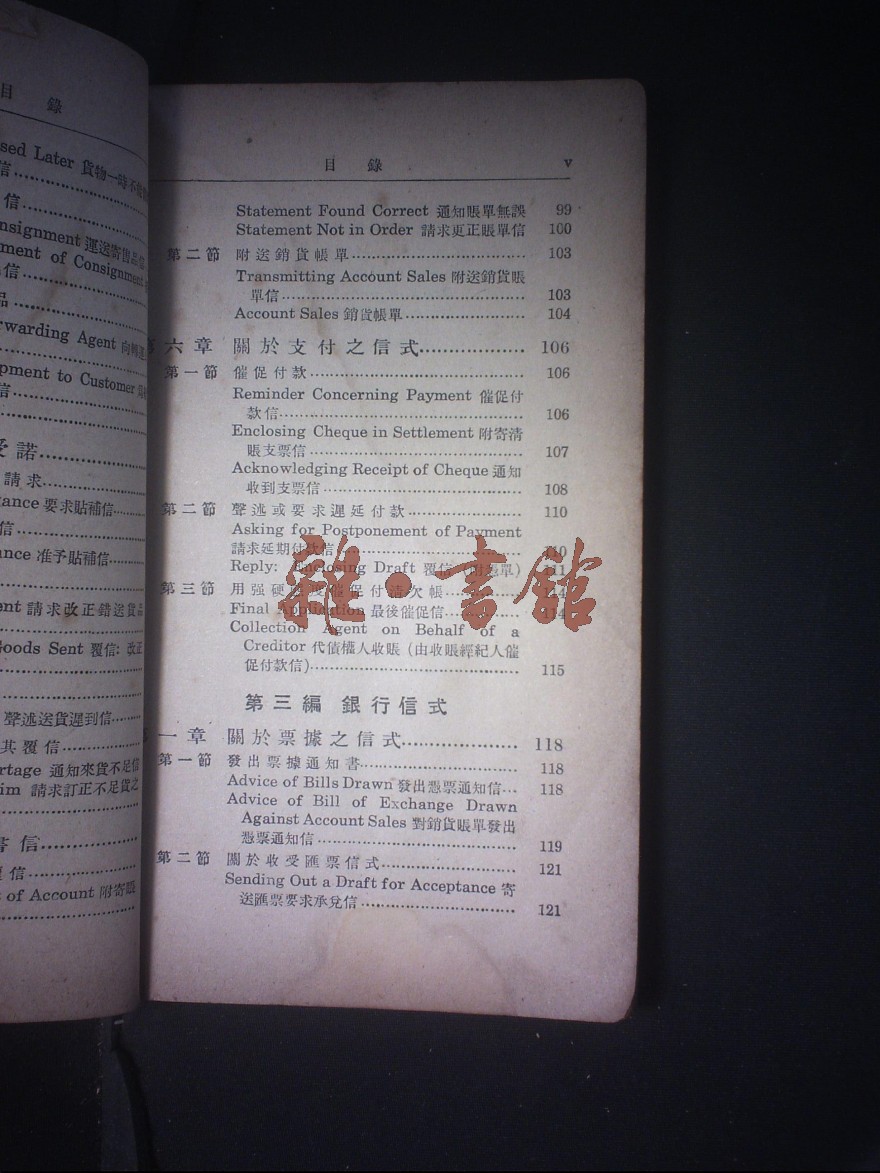 目 錄
sed Later 貨物一時不
信
信
onsignment 運送寄售品信
ment of Consignment
信
品
rwarding Agent 向轉運
pment to Customer
信
受諾
請求
ance 要求貼補信
信
ance 准予貼補信
ent 請求改正錯送貨品
Goods Sent 覆信: 改正
聲述送貨遲到信
其覆信
rtage 通知來貨不足信
im 請求訂正不足貨之
書信
信
of Account 附寄賬
目 錄 v
Statement Found Correct 通知賬單無誤 99
Statement Not in Order 請求更正賬單信 100
第二節 附送銷貨帳單 103
Transmitting Account Sales 附送銷貨賬
單信 103
Account Sales 銷貨帳單 104
六章 關於支付之信式 106
第一節 催促付款 106
Reminder Concerning Payment 催促付
款信 106
Enclosing Cheque in Settlement 附寄清
賬支票信 107
Acknowledging Receipt of Cheque 通知
收到支票信 108
第二節 聲述或要求遲延付款 110
Asking for Postponement of Payment
請求延期付款信 110
Reply: Enclosing Draft 覆信 (附匯單) 111
第三節 用强硬態度催促付清欠帳 114
Final Application 最後催促信 114
Collection Agent on Behalf of a
Creditor 代債權人收賬 (由收賬經紀人催
促付款信) 115
第三編 銀行信式
一章 關於票據之信式 118
第一節 發出票據通知書 118
Advice of Bills Drawn 發出憑票通知信 118
Advice of Bill of Exchange Drawn
Against Account Sales 對銷貨賬單發出
憑票通知信 119
第二節 關於收受匯票信式 121
Sending Out a Draft for Acceptance 寄
送匯票要求承兌信 121
雜·書館